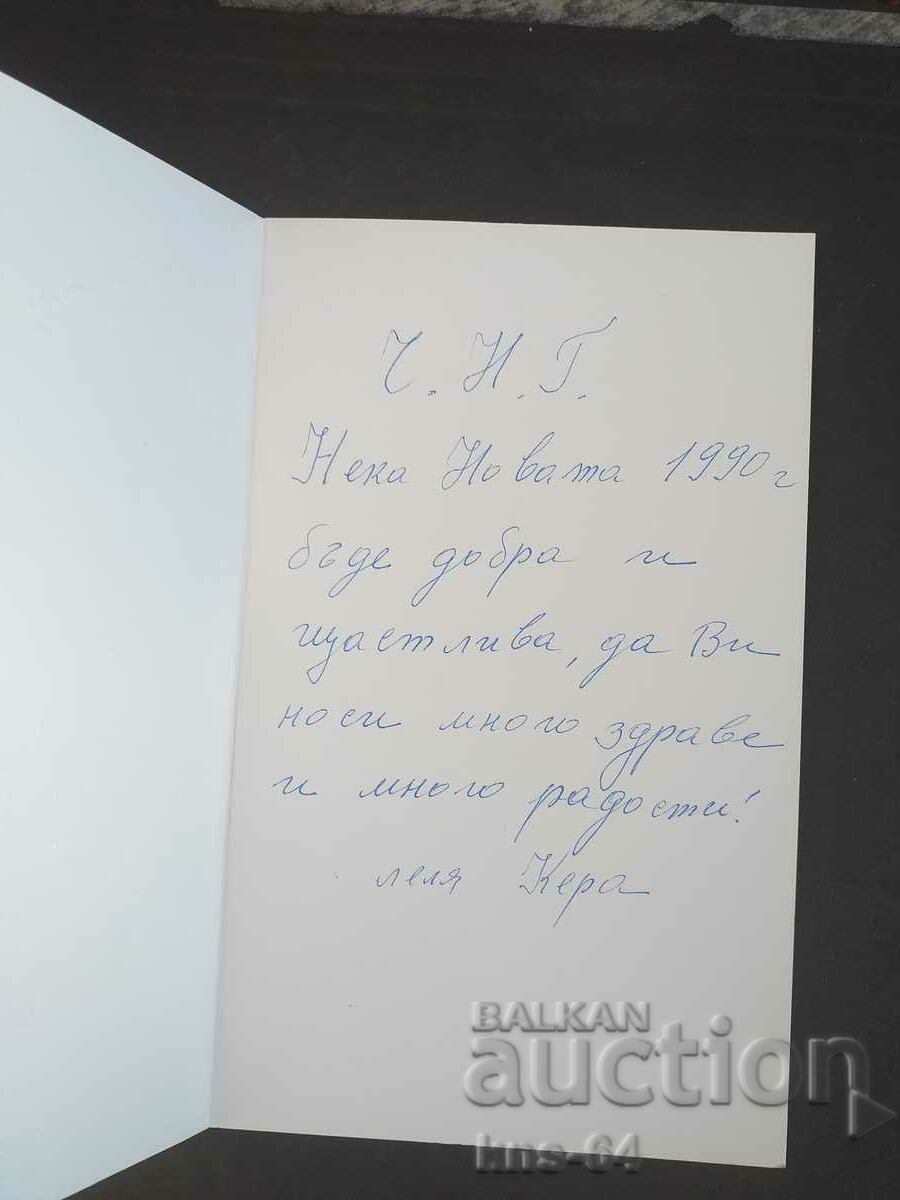 Ч.Н.Г.
Нека Новата 1990г
бъде добра и
щастлива, да Ви
носи много здраве
и много радости!
леля Кера
BALKAN
auction
kns-64